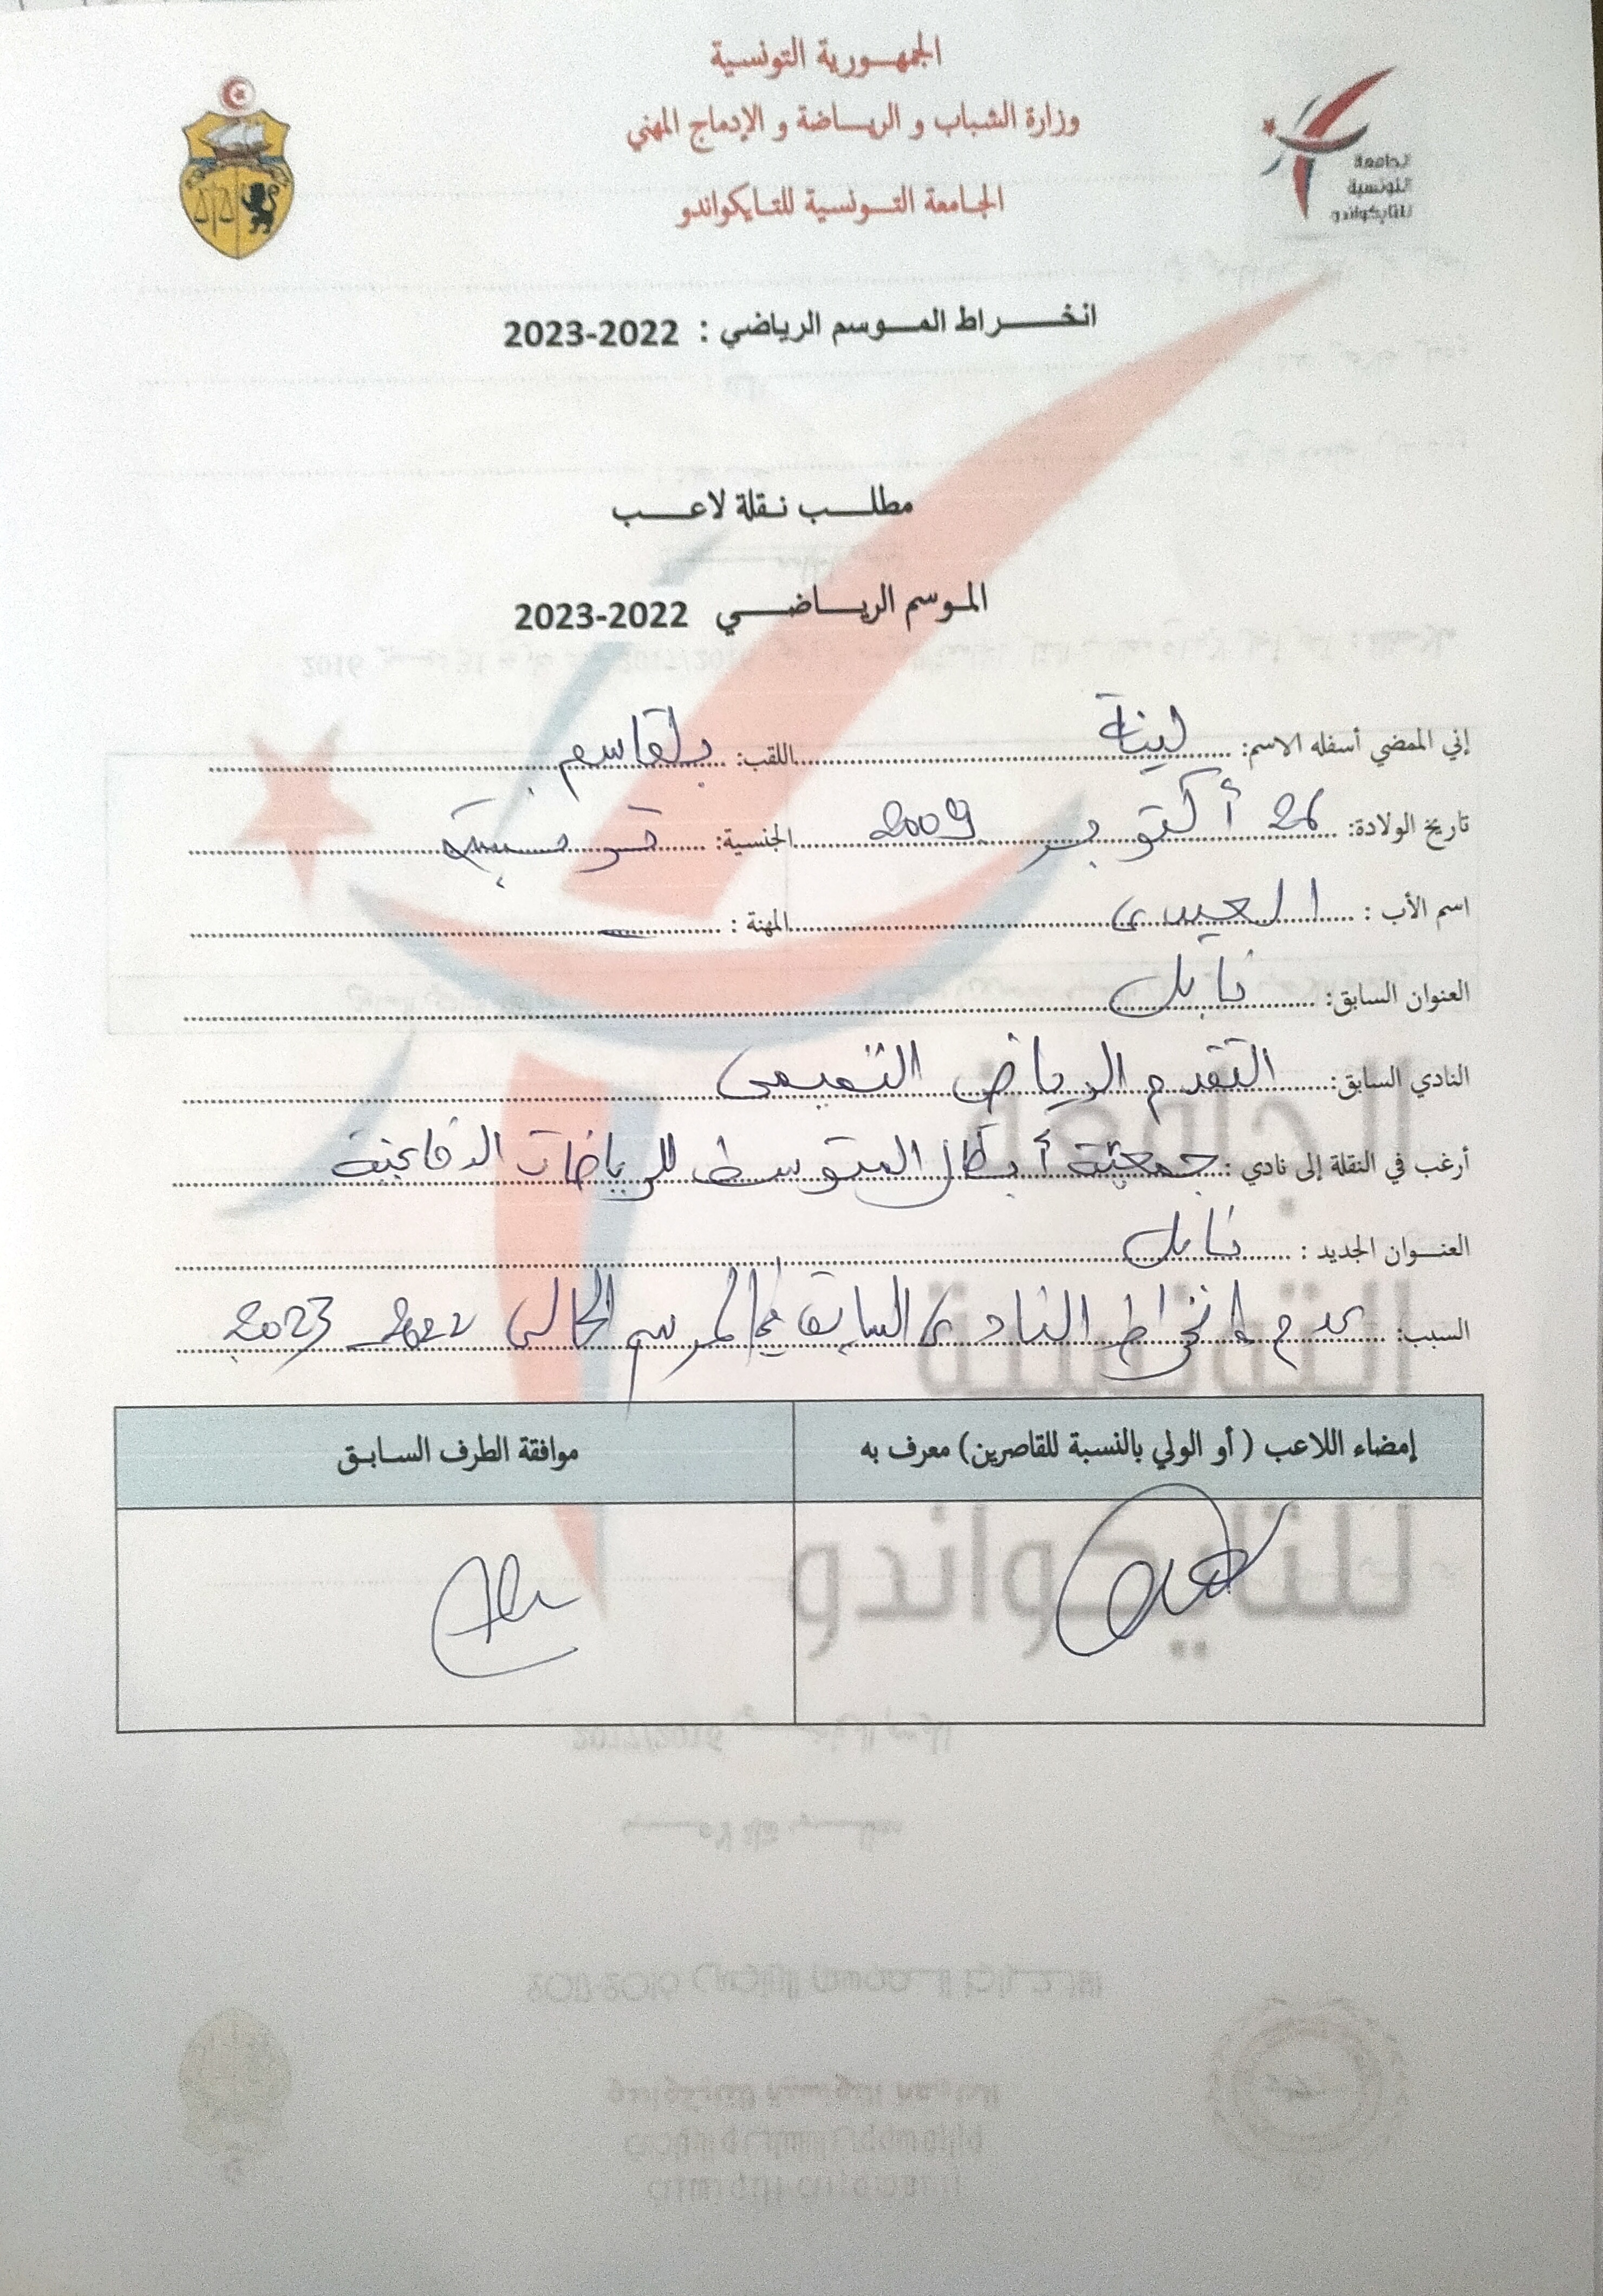 الجمهورية التونسية
وزارة الشباب و الرياضة و الإدماج المهني
الجامعة التونسية للتايكواندو
الجامعة
التونسية
للتايكواندو
انخراط الموسم الرياضي : 2022-2023
مطلب نقلة لاعب
الموسم الرياضي 2022-2023
إني الممضي أسفله الاسم: لينة اللقب: بلقاسم
تاريخ الولادة: 26 أكتوبر 2009 الجنسية: تونسية
اسم الأب : المهنة : –
العنوان السابق: نابل
النادي السابق: التقدم الرياضي
أرغب في النقلة إلى نادي : جمعية أبطال المتوسط للرياضات الدفاعية
العنوان الجديد : نابل
السبب: عدم انخراط النادي السابق في الموسم الحالي 2022-2023
إمضاء اللاعب ( أو الولي بالنسبة للقاصرين) معرف به
موافقة الطرف السابق
الجامعة
التونسية
للتايكواندو